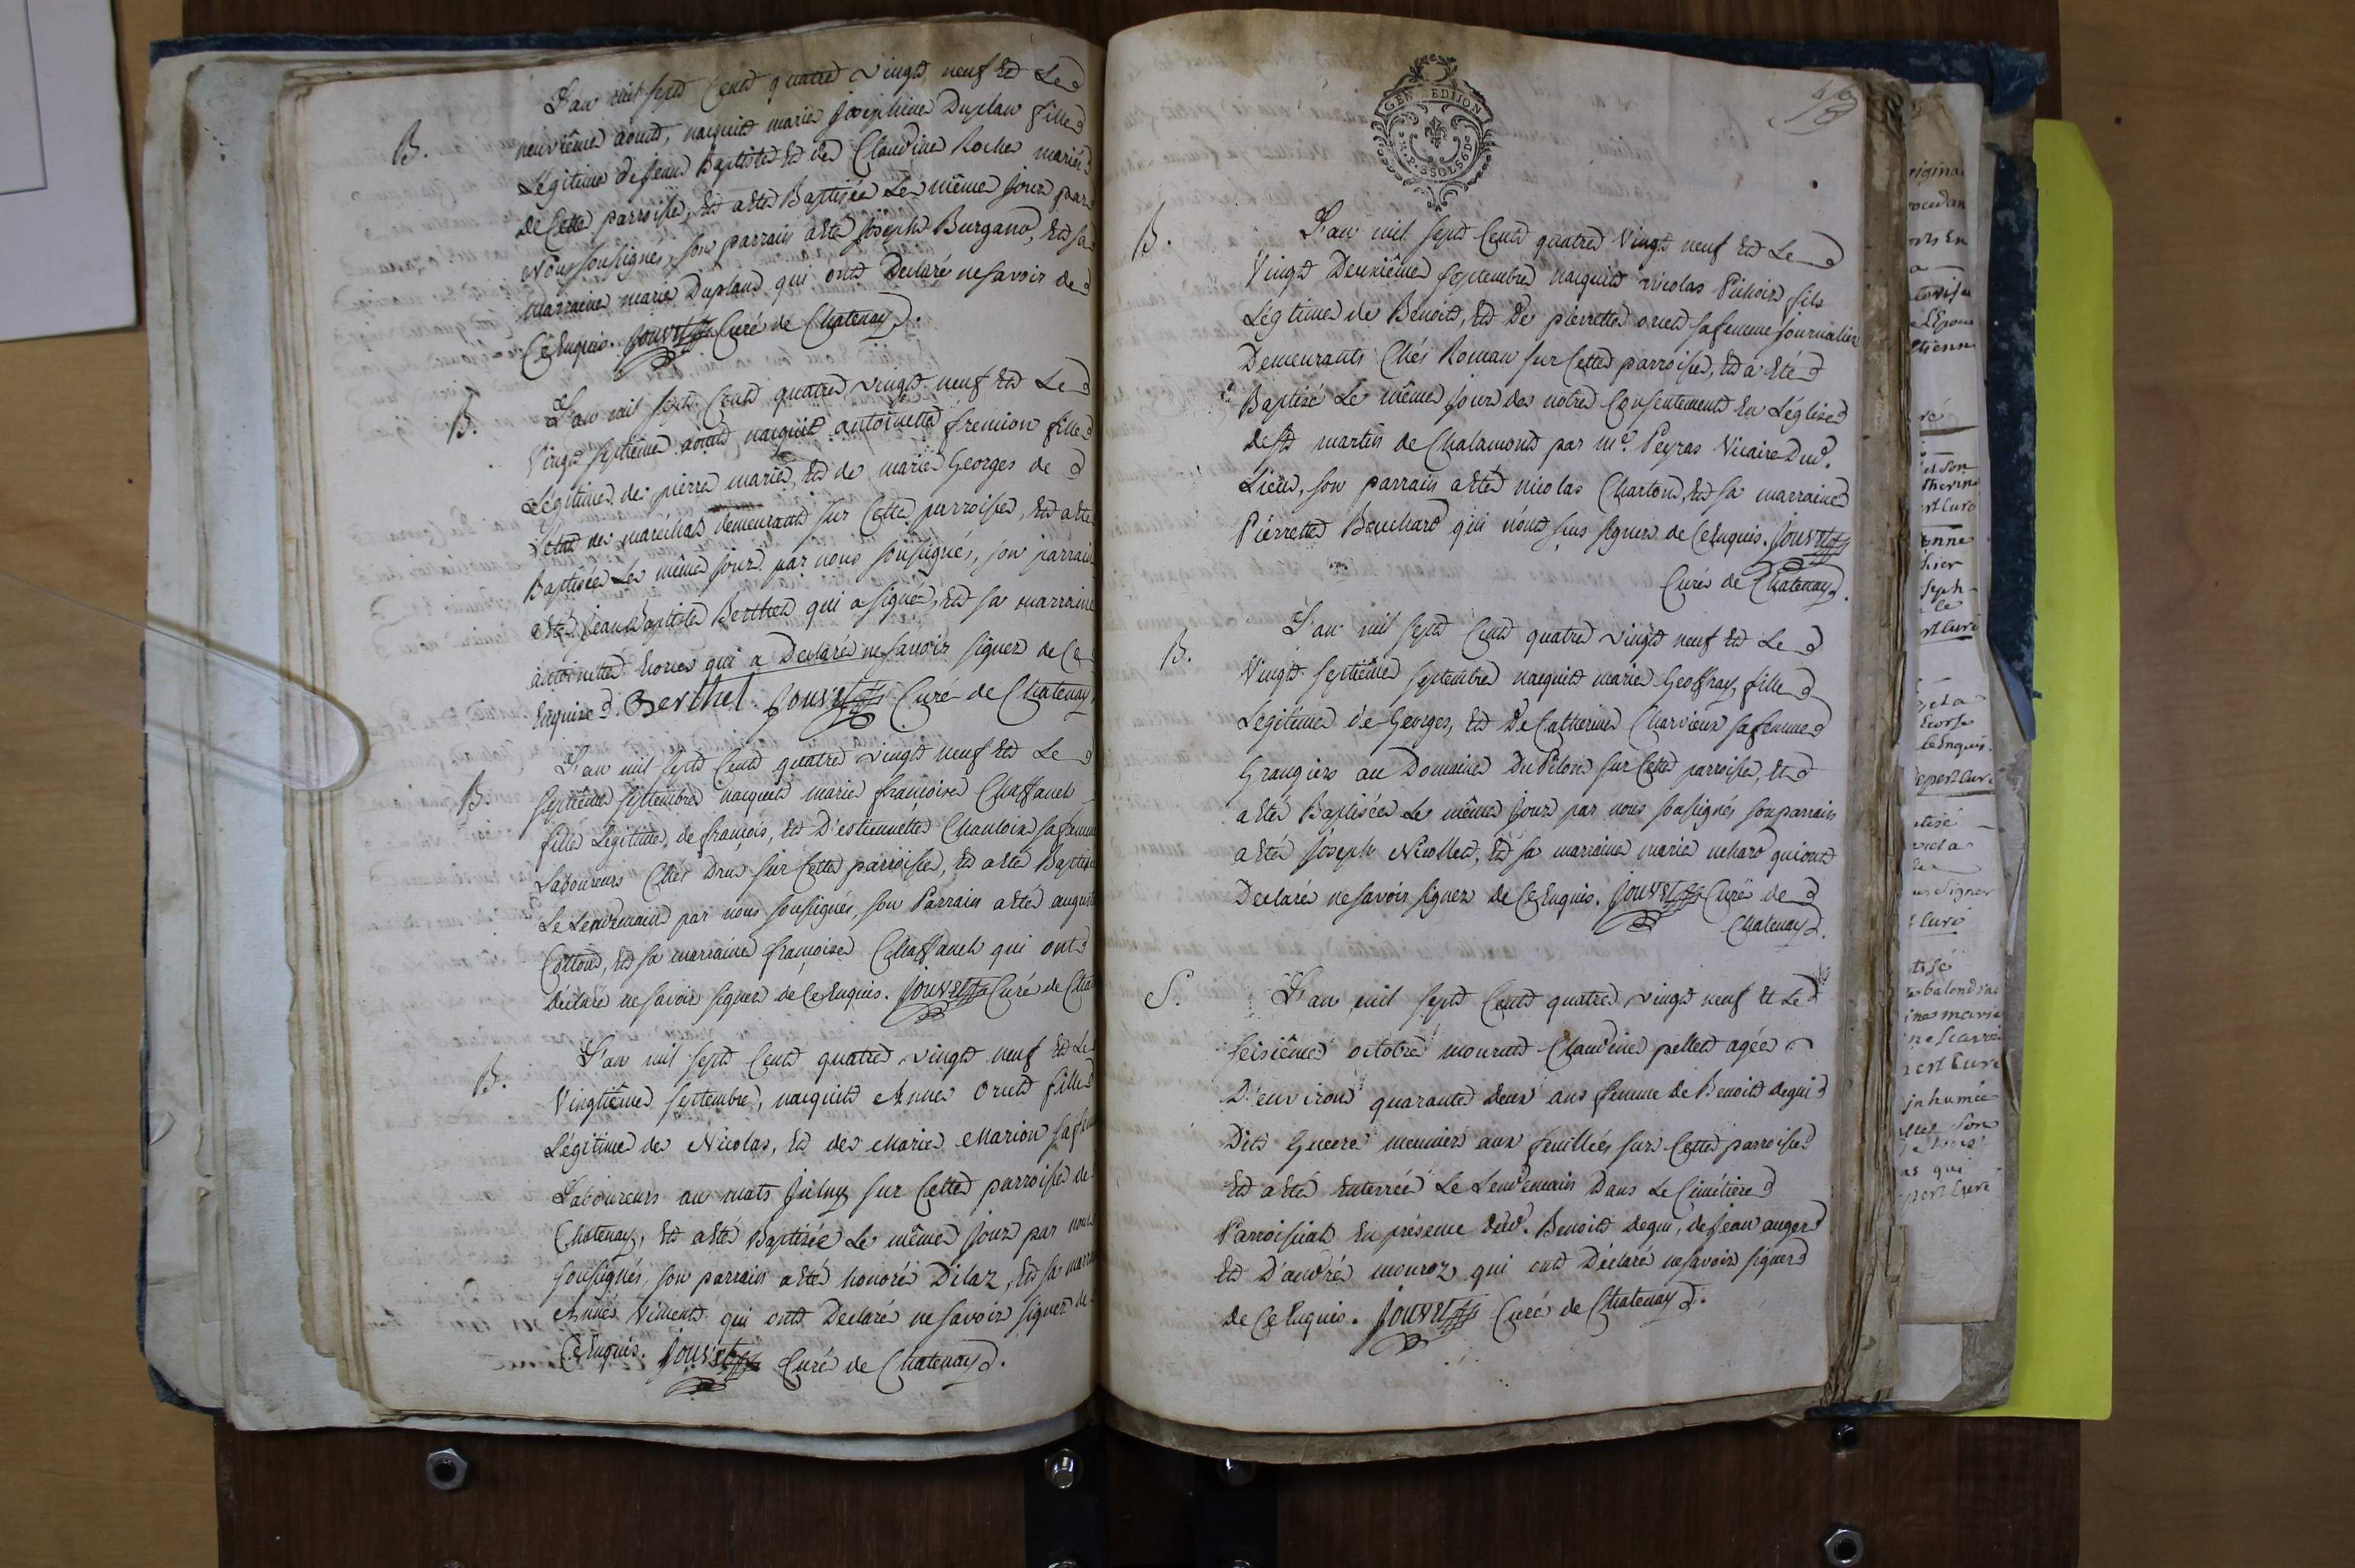 L'an mil sept Cent quatre vingt neuf Et Le
B.
neuvième aout, naquit marie Josephine Duplan fille
Légitime de Jean Baptiste Et de Claudine Roche mariés
de Cette parroisse, Et a été Baptisée Le même jour par
Nous soussignés, son parrain a été Joseph Burgand, Et sa
marraine marie Dupland qui ont Declaré ne savoir de
Ce Enquis. Jouvet Curé de Chatenay.
B.
L'an mil sept Cent quatre vingt neuf Et Le
Vingt septième aout naquit antoinette fremion fille
Légitime de pierre marié, Et de marie Georges de
létat de maréchal demeurant sur Cette parroisse, Et a été
Baptisée Le même jour par nous soussignés, son parrain
a été Jean Baptiste Berthet qui a signé, Et sa marraine
antoinette qui a Declaré ne savoir signer de Ce
Enquise. Berthet Jouvet Curé de Chatenay.
L'an mil sept Cent quatre vingt neuf Et Le
B.
septième septembre naquit marie françoise Chaffanel
fille Légitime, de françois, Et D'estiennette Chanloin sa femme
Laboureurs Chés Dru sur Cette parroisse, Et a été Baptisé
Le Lendemain par nous soussignés, son Parrain a été august
Cottond, Et sa marraine françoise Chaffanel qui ont
Déclaré ne savoir signer de Ce Enquis. Jouvet Curé de Chat
L'an mil sept Cent quatre vingt neuf Et Le
B.
Vingtième septembre, naquit Anne Orut fille
Légitime de Nicolas, Et de Marie Marion sa femme
Laboureurs au mats Juliny sur Cette parroisse de
Chatenay, Et a été Baptisée Le même jour par nous
soussignés, son parrain a été honoré Dilaz, Et sa marra
Anne Viment qui ont Declaré ne savoir signer de
Ce Enquis. Jouvet Curé de Chatenay.
GEN DE DIJON
M.P. 3 SOLS 6 D
B.
L'an mil sept Cent quatre Vingt neuf Et Le
Vingt Deuxième septembre naquit nicolas Pichoin fils
Légtime de Benoit, Et De pierrette oruet sa femme journalier
Demeurants Chés Roman sur Cette parroisse, Et a été
Baptisé Le même jour de notre Consentement En Léglise
de St martin de Chalamont par mr. Peyras Vicaire Dud.
Lieu, son parrain a été nicolas Charton, Et sa marraine
Pierrette Bouchard qui n'ont sus signer de Ce Enquis. Jouvet
Curé de Chatenay.
L'an mil sept Cent quatre vingt neuf Et Le
B.
Vingt septième septembre naquit marie Geoffray, fille
Légitime de Georges, Et De Catherine Charvieux sa femme
Grangiers au Domaine Du Pilon sur Cette parroisse, Et
a été Baptisée Le même jour par nous soussignés son parrain
a été Joseph Nicollet, Et sa marraine marie michard qui ont
Declaré ne savoir signer de Ce Enquis. Jouvet Curé de
Chatenay.
S.
L'an mil sept Cent quatre vingt neuf Et Le
seisième octobre mourut Claudine pellet agée
D'environ quarante deux ans femme de Benoit degui
Dit Guerre meunier aux feuillées sur Cette parroisse
Et a été Enterrée Le Lendemain Dans Le Cimetière
Parroissial En présence dud. Benoit degui, de Jean auger
Et D'andré mouroz qui ont Déclaré ne savoir signer
De Ce Enquis. Jouvet Curé de Chatenay.